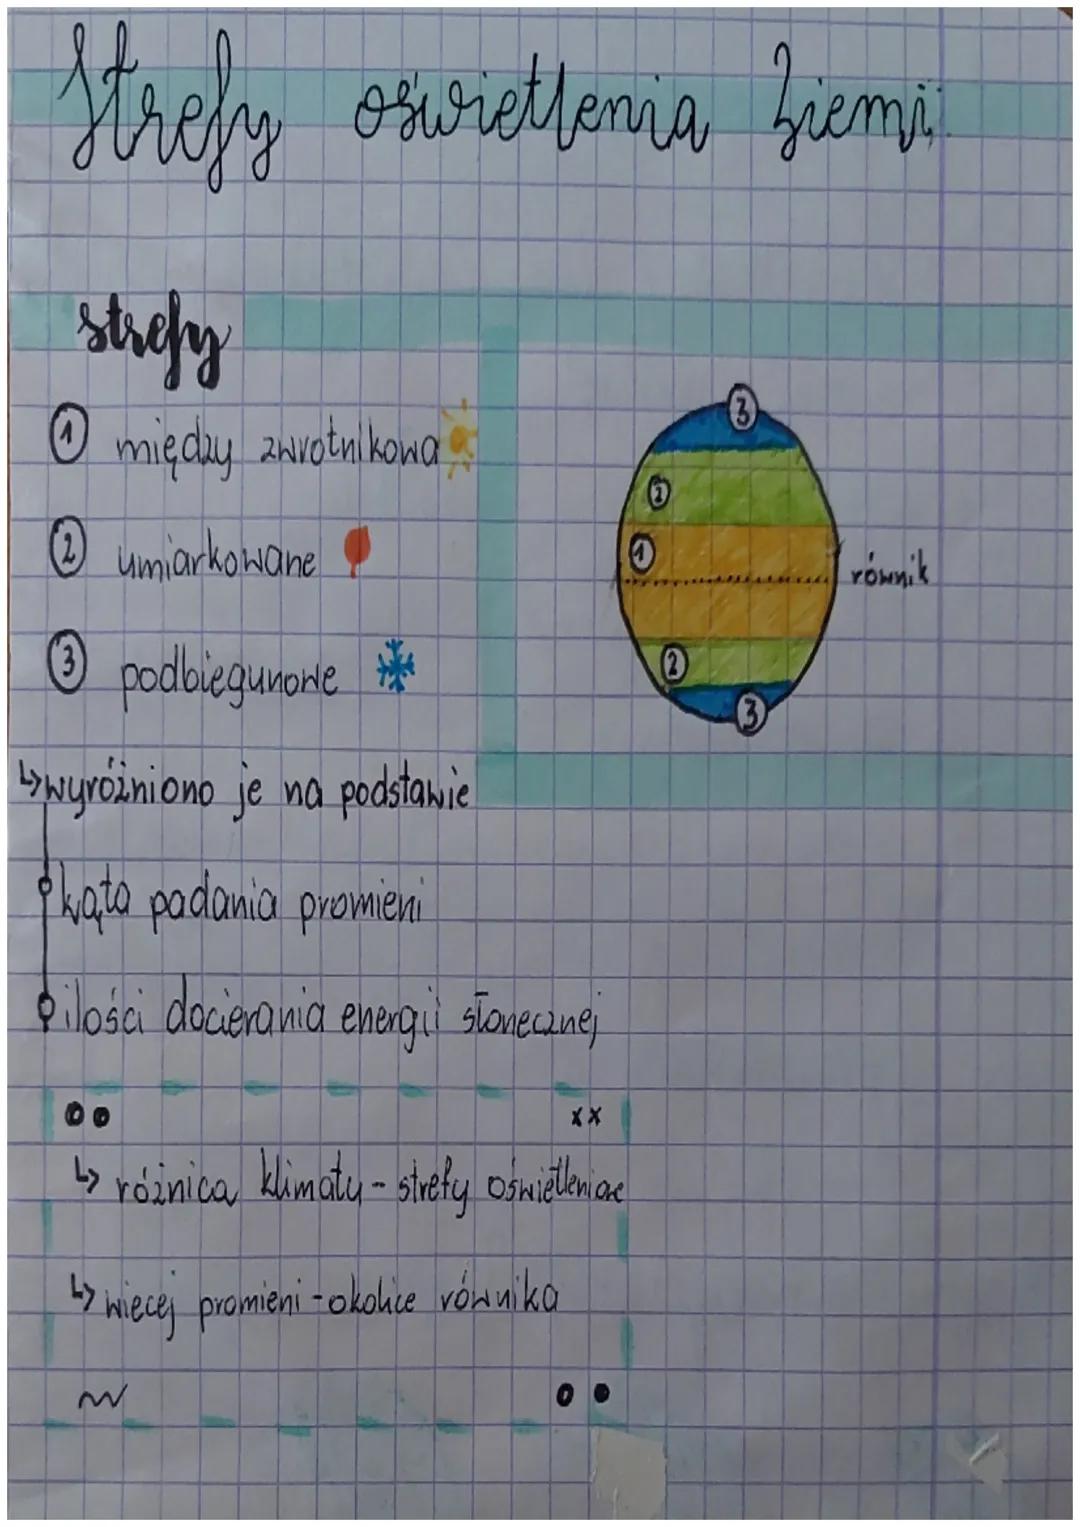 Strefy oświetlenia Ziemi
strefy
1 między zwrotnikowa
2 umiarkowane
3 podbiegunowe
↳wyróżniono je na podstawie
kąta padania promieni
ilości docierania energii słonecznej
↳ różnica klimatu - strefy oświetleniowe
↳ więcej promieni - okolice równika
3
2
1
równik
2
3